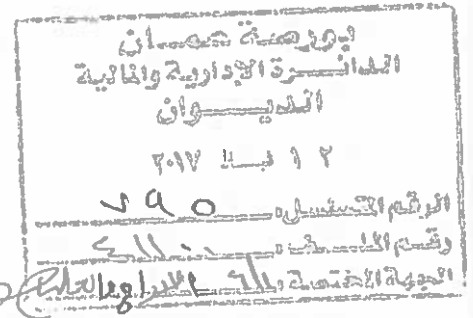 بورصة عمان
الدائرة الإدارية والمالية
الديوان
١٢ شباط ٢٠١٧
الرقم المتسلسل: ٧٩٥
رقم الملف:
الجهة المختصة: